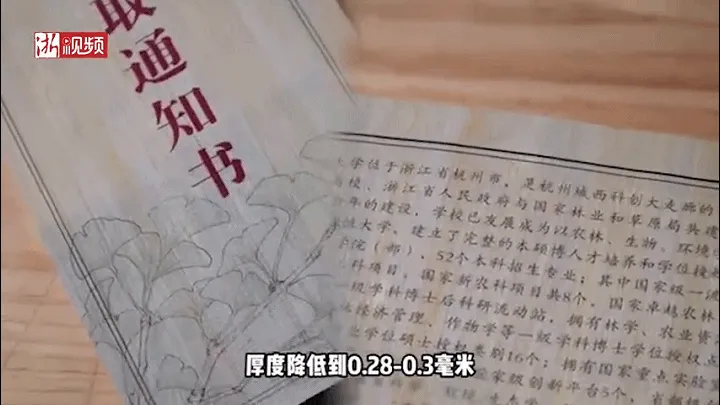 浙视频
取通知书
大学位于浙江省杭州市，是杭州城西科创大走廊的
校、浙江省人民政府与国家林业和草原局共建
年的建设，学校已发展成为以农林、生物、环境
大学，建立了完整的本硕博人才培养和学位授
学院（部），52个本科招生专业；其中国家级一流
科项目，国家新农科项目共8个，国家卓越农林
级学科博士后科研流动站，拥有林学、农业资
经济管理、作物学等一级学科博士学位授权点
业学位硕士授权类别16个；拥有国家重点实验室
家级创新平台5个，省部级
厚度降低到0.28-0.3毫米